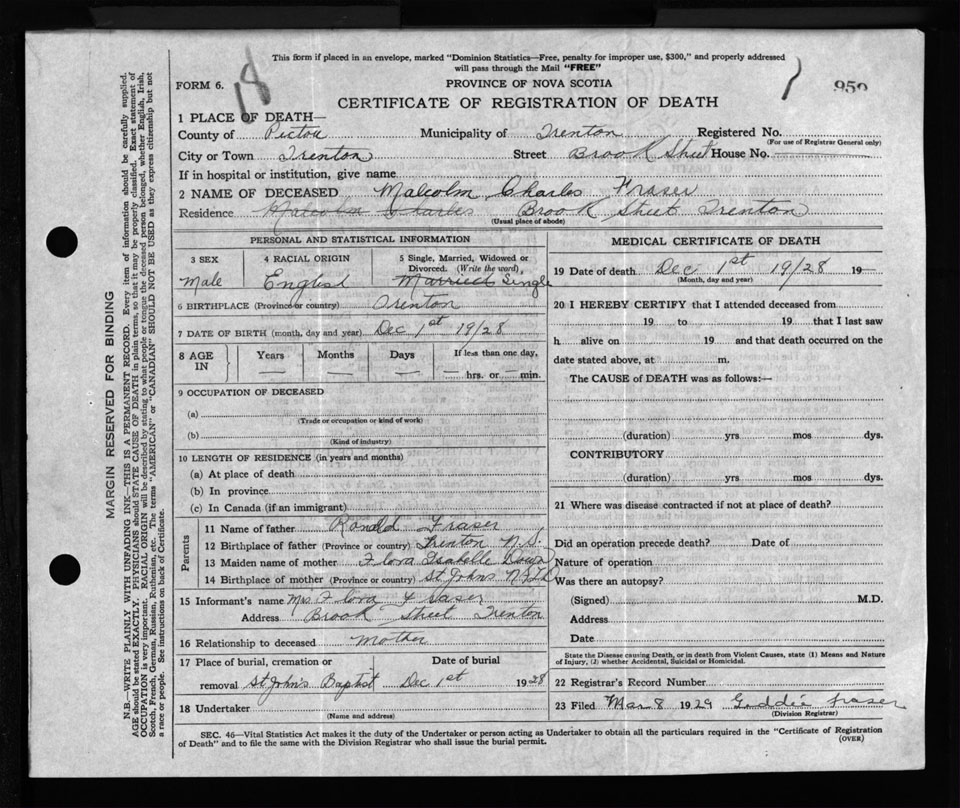 This form if placed in an envelope, marked "Dominion Statistics—Free, penalty for improper use, $300," and properly addressed
will pass through the Mail "FREE"
18
1
959
FORM 6.
PROVINCE OF NOVA SCOTIA
CERTIFICATE OF REGISTRATION OF DEATH
1 PLACE OF DEATH—
County of Pictou Municipality of Trenton Registered No.
(For use of Registrar General only)
City or Town Trenton Street Brook Street House No.
If in hospital or institution, give name
2 NAME OF DECEASED Malcolm Charles Fraser
Residence Malcolm Charles Brook Street Trenton
(Usual place of abode)
PERSONAL AND STATISTICAL INFORMATION
3 SEX 4 RACIAL ORIGIN 5 Single, Married, Widowed or
Divorced. (Write the word)
Male English Married Single
6 BIRTHPLACE (Province or country) Trenton
7 DATE OF BIRTH (month, day and year) Dec 1st 19/28
8 AGE IN Years Months Days If less than one day,
— — — — hrs. or — min.
9 OCCUPATION OF DECEASED
(a)
(Trade or occupation or kind of work)
(b)
(Kind of industry)
10 LENGTH OF RESIDENCE (in years and months)
(a) At place of death
(b) In province
(c) In Canada (if an immigrant)
Parents
11 Name of father Ronald Fraser
12 Birthplace of father (Province or country) Trenton N.S.
13 Maiden name of mother Flora Isabelle
14 Birthplace of mother (Province or country) St Johns NFLD
15 Informant's name Mrs Flora Fraser
Address Brook Street Trenton
16 Relationship to deceased Mother
17 Place of burial, cremation or Date of burial
removal St John's Baptist Dec 1st 1928
18 Undertaker
(Name and address)
MEDICAL CERTIFICATE OF DEATH
19 Date of death Dec 1st 19/28 19—
(Month, day and year)
20 I HEREBY CERTIFY that I attended deceased from
19 to 19 that I last saw
h alive on 19 and that death occurred on the
date stated above, at m.
The CAUSE of DEATH was as follows:—
(duration) yrs mos dys.
CONTRIBUTORY
(duration) yrs mos dys.
21 Where was disease contracted if not at place of death?
Did an operation precede death? Date of
Nature of operation
Was there an autopsy?
(Signed) M.D.
Address
Date
State the Disease causing Death, or in death from Violent Causes, state (1) Means and Nature
of Injury, (2) whether Accidental, Suicidal or Homicidal.
22 Registrar's Record Number
23 Filed Mar 8 1929 Fraser
(Division Registrar)
SEC. 46—Vital Statistics Act makes it the duty of the Undertaker or person acting as Undertaker to obtain all the particulars required in the "Certificate of Registration
of Death" and to file the same with the Division Registrar who shall issue the burial permit.
(OVER)
MARGIN RESERVED FOR BINDING
N.B.—WRITE PLAINLY WITH UNFADING INK—THIS IS A PERMANENT RECORD. Every item of information should be carefully supplied.
AGE should be stated EXACTLY. PHYSICIANS should STATE CAUSE OF DEATH in plain terms, so that it may be properly classified. Exact statement of
OCCUPATION is very important. RACIAL ORIGIN will be described by stating to what people or tongue the deceased person belonged, whether English, Irish,
Scotch, French, German, Russian, Ruthenian, etc. The terms "AMERICAN" or "CANADIAN" SHOULD NOT BE USED as they express citizenship but not
a race or people. See instructions on back of Certificate.